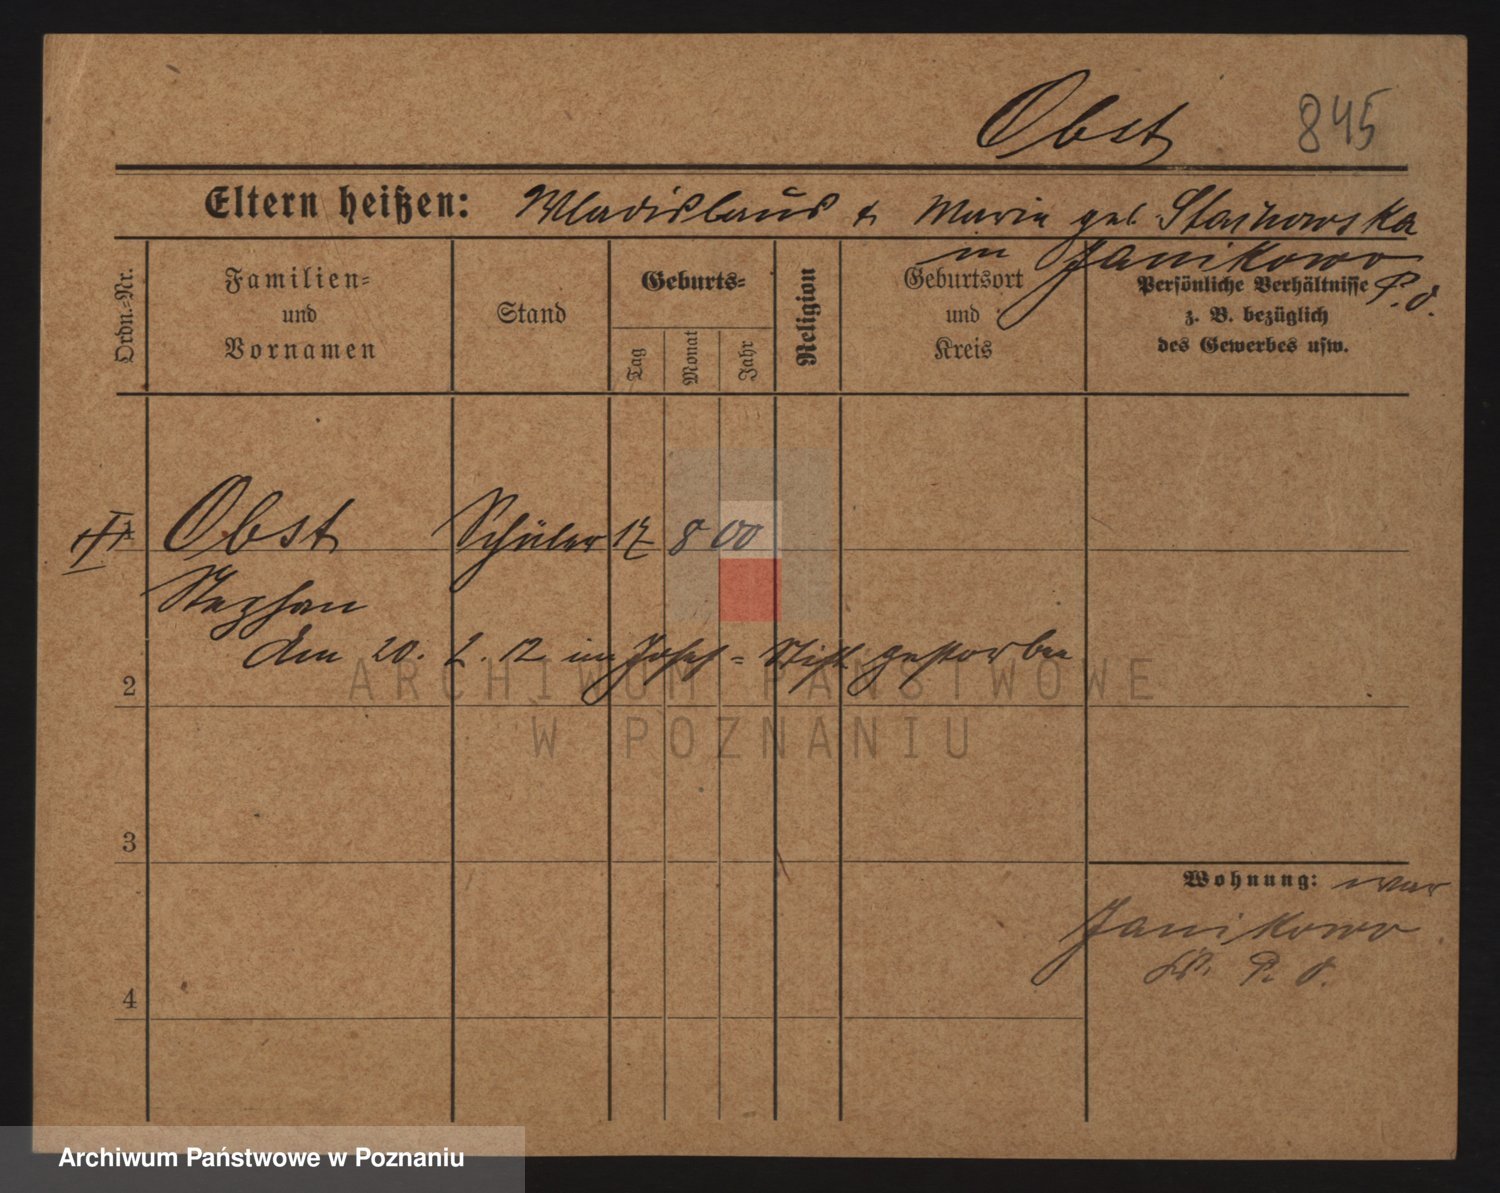 Obst 845
Eltern heißen: Wladislaus & Maria geb.
in Janikowo
P. O.
Ordn.-Nr.
Familien-
und
Vornamen
Stand
Geburts-
Tag
Monat
Jahr
Religion
Geburtsort
und
Kreis
Persönliche Verhältnisse
z. B. bezüglich
des Gewerbes usw.
1 Obst Schüler 17 8 00
Stephan
den 20. 2. 12 im Josef-Stift gestorben
2
ARCHIWUM PAŃSTWOWE
W POZNANIU
3
Wohnung: war
Janikowo
P. O.
4
Archiwum Państwowe w Poznaniu